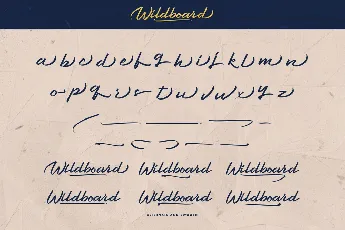 Wildboard
a b c d e f g h i j k l m n
o p q r s t u v w x y z
Wildboard Wildboard Wildboard
Wildboard Wildboard Wildboard